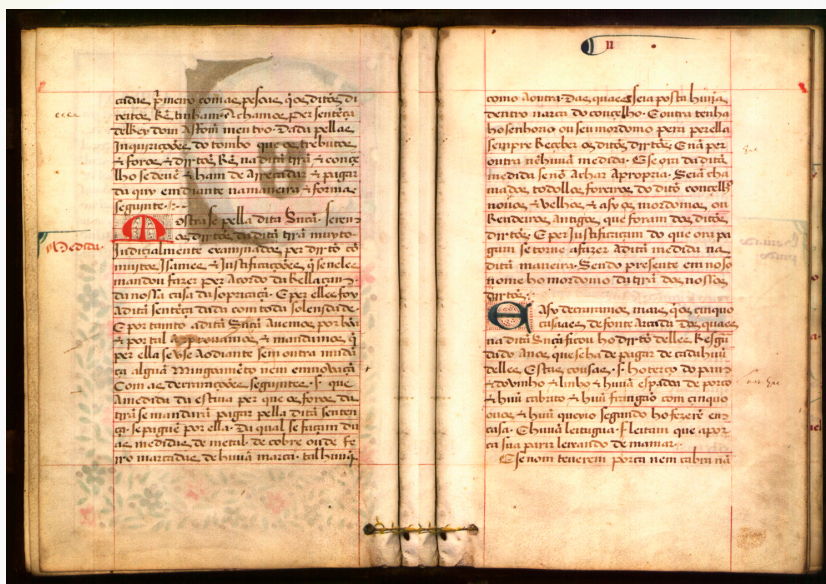 reitos
delRey dom
Inquirições do tombo que os trebutos
lho se deuē & ham de arrecadar & pagar
da quy em diante na maneira & forma
seguinte
Mostra se pella dita Snñca serem
os dirtos da dita trã muyto
Medidas
Judicialmente examinados per dirto cõ
muytos Isames & Justificações q̃ se nele
mandou fazer per acordo da Rellaçam
da nossa casa da sopricaçã E per elles foy
aditta sentẽça dada com toda solenidade
E por tanto adita Snñca auemos por bõa
& por tal aprouamos & mandamos q̃
per ella se vse ao diante sem outra mudã
ça algũa mingoamẽto nem ennouaçã
Com as decrarações seguintes .s. que
a medida da estiua per que os foros da
trã se mandarã pagar pella dita senten
ça se paguē por ella Da qual se façam du
as medidas de metal de cobre ou de fe
rro marcadas de huũa marca tal huũa
II
como a outra Das quaes seia posta huũa
dentro na arca do conçelho E outra tenha
ho senhorio ou seu mordomo pera per ella
sempre Reçeber os ditos dirtos E nã per
outra nẽhuũa medida E se ora da dita
medida senõ achar a propria Seiã cha
mados todollos foreiros do dito concelho
nouos & velhos & assy os mordomos ou
Rendeiros antigos que foram dos ditos
dirtos E per Justificaçam do que ora pa
gam se torne a fazer adita medida na
dita maneira Sendo presente em nosso
nome ho mordomo da trã dos nossos
dirtos
casaaes de fonte arcada dos quaes
na dita Snñca ficou ho dirto delles Resgu
dado Aos que se ha de pagar de cada huũ
delles Estas cousas .s. ho terço do pam
& do vinho & linho & huũa espadoa de porco
& huũ cabrito & huũ frangão com cinquo
ouos & huũ queyio segundo ho fezerē em
casa E huũa leitugua .s. leitam que a por
ca sua pariu leixando de mamar
E se nom teuerem porca nem cabra nã